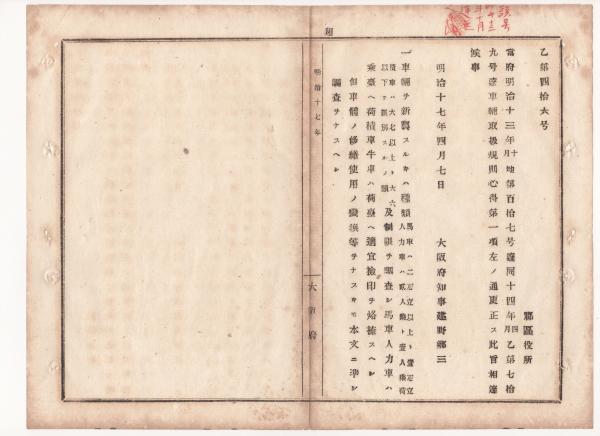 乙第四拾六号
郡區役所
當府明治十三年十月地第百拾七号達同十四年四月乙第七拾
九号達車輛取扱規則心得第一項左ノ通更正ス此旨相達
候事
明治十七年四月七日
大阪府知事建野郷三
一車輛ヲ新製スルキハ種類馬車ハ二匹立以上ト壹匹立人力車ハ貳人乘ト壹人乘荷
積車ハ大七以上ト大六以下ヲ區別スルノ類及制限ヲ調査シ馬車人力車ハ
乘臺ヘ荷積車牛車ハ荷臺ヘ適宜撿印ヲ烙捺スヘシ
但車體ノ修繕使用ノ變換等ヲナスキモ本文ニ準シ
調査ヲナスヘシ
明治十七年
大阪府